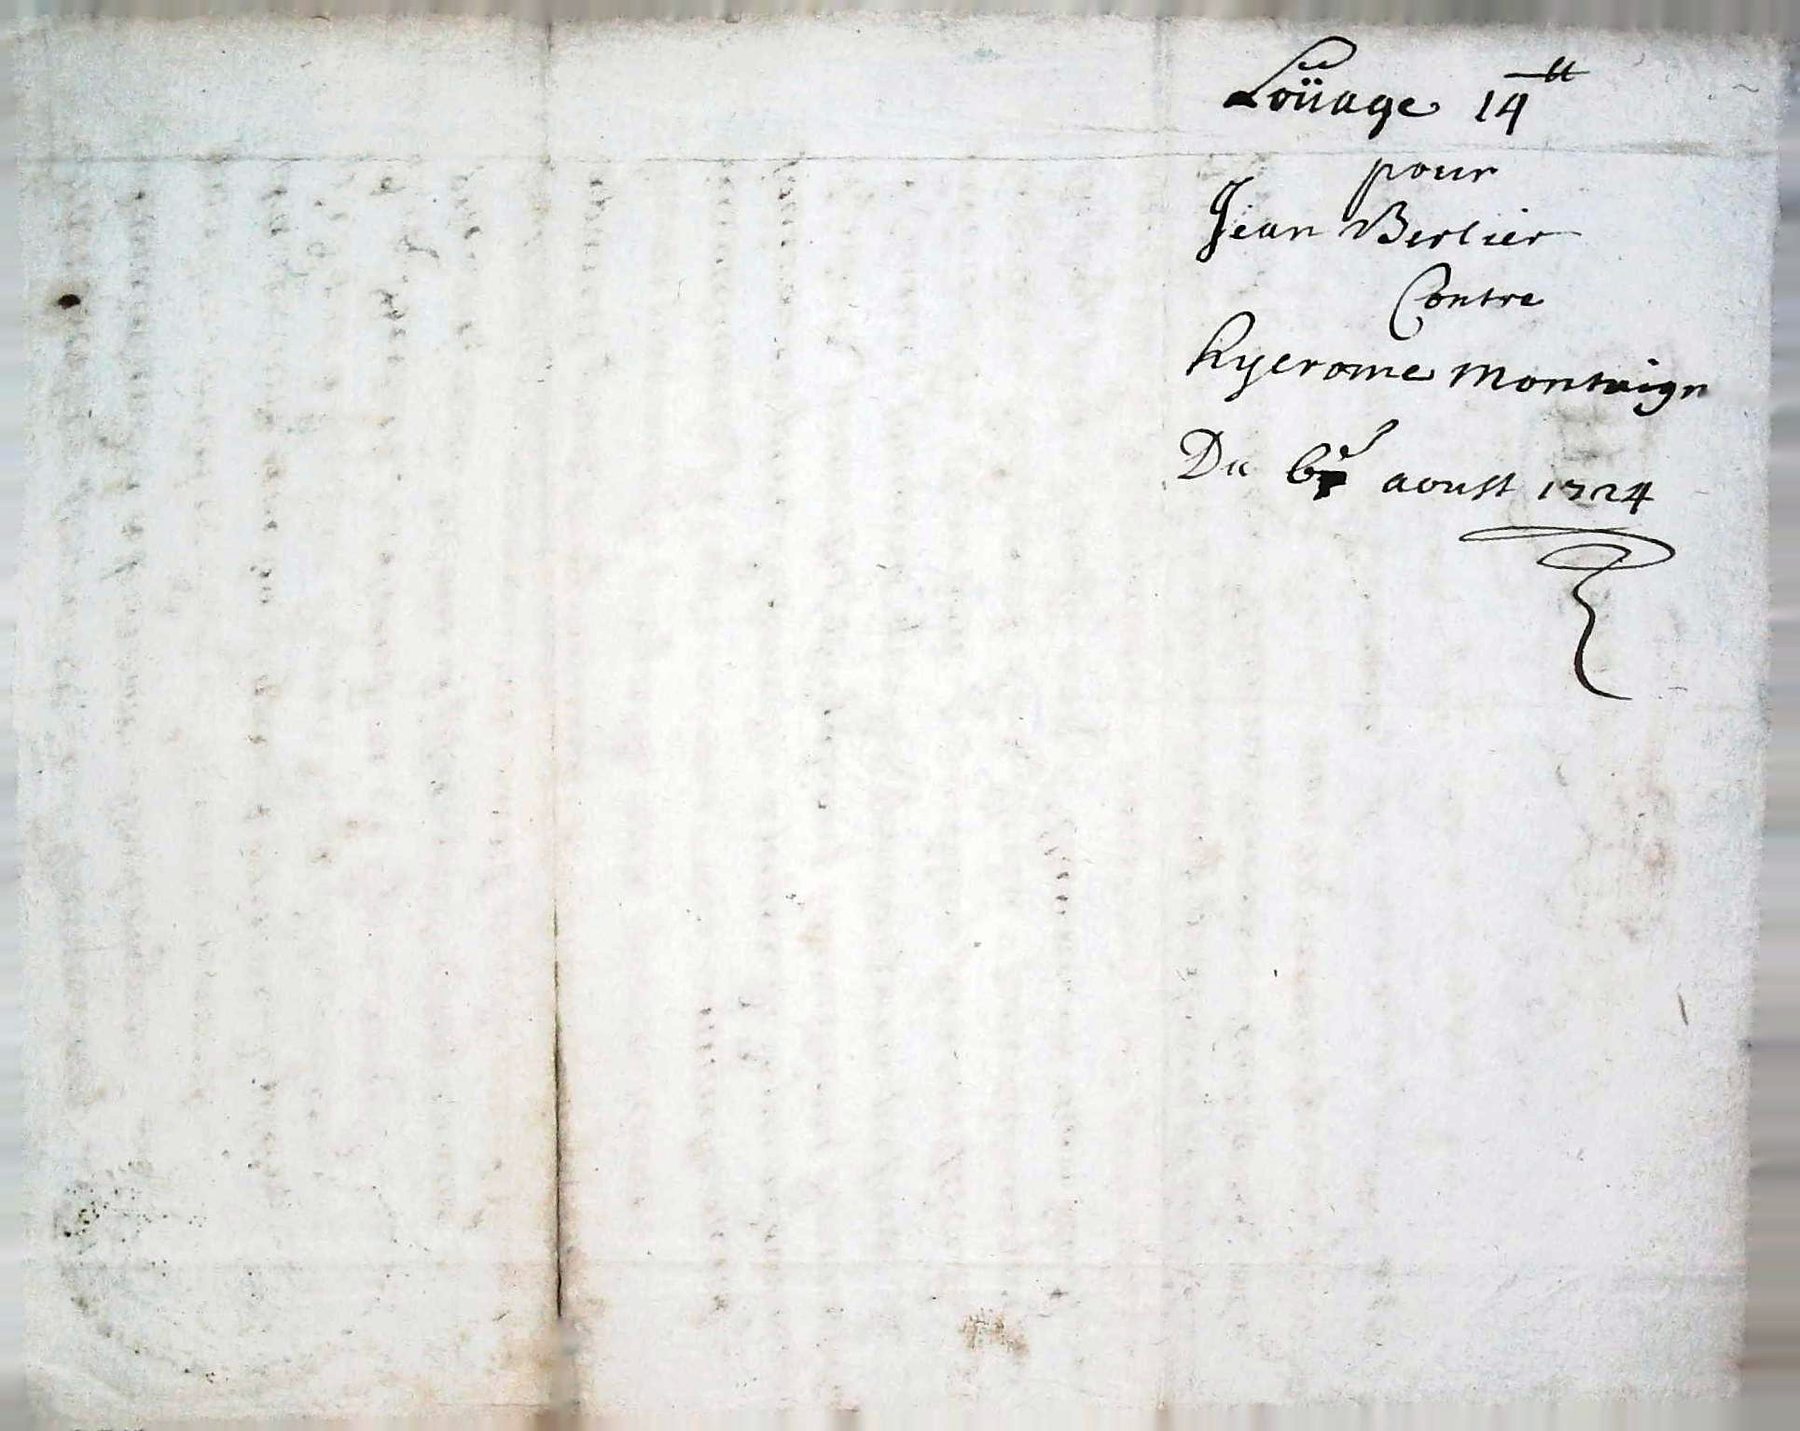 Loüage 14 tt
pour
Jean Berlier
Contre
hyerome montaign
Du 6e aoust 1724